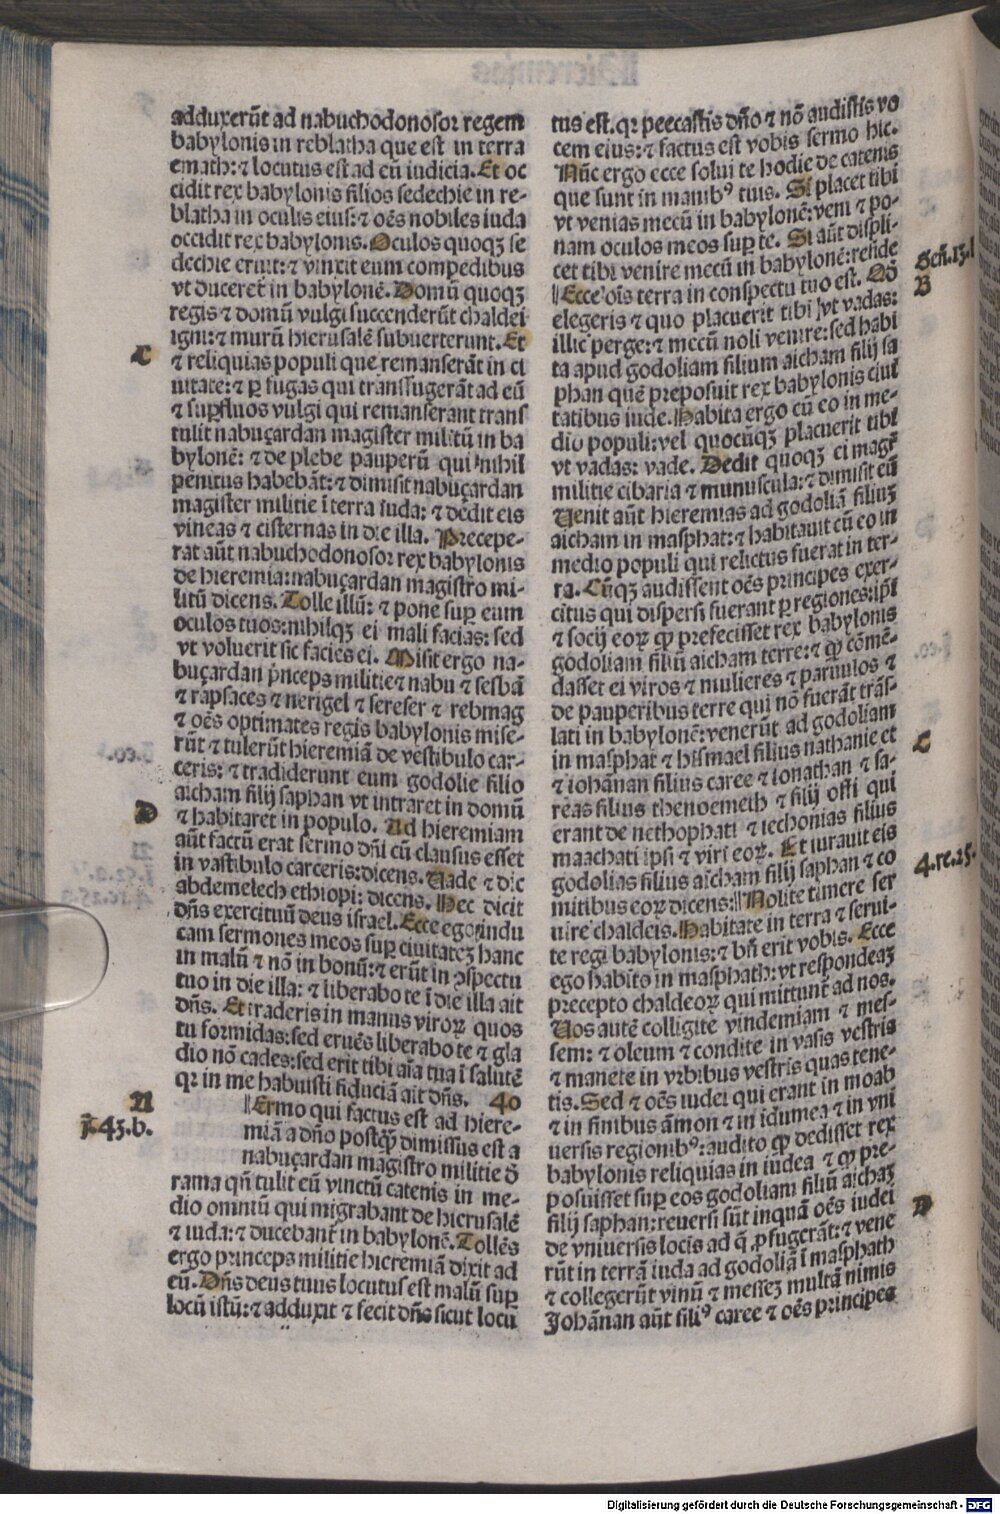 adduxerūt ad nabuchodonosor regem
babylonis in reblatha que est in terra
emath: ⁊ locutus est ad eū iudicia. Et oc
cidit rex babylonis filios sedechie in re-
blatha in oculis eius: ⁊ oēs nobiles iuda
occidit rex babylonis. Oculos quoqꝫ se
dechie eruit: ⁊ vinxit eum compedibus
vt duceret in babylonē. Domū quoqꝫ
regis ⁊ domū vulgi succenderūt chaldei
igni: ⁊ murū hierusalē subuerterunt. Et
C
⁊ reliquias populi que remanserāt in ci
uitate: ⁊ ꝑfugas qui transfugerāt ad eū
⁊ suꝑfluos vulgi qui remanserant trans
tulit nabuçardan magister militū in ba
bylonē: ⁊ de plebe pauperū qui nihil
penitus habebāt: ⁊ dimisit nabuçardan
magister militie ī terra iuda: ⁊ dedit eis
vineas ⁊ cisternas in die illa. Precepe-
rat aūt nabuchodonosor rex babylonis
de hieremia: nabuçardan magistro mi-
litū dicens. Tolle illū: ⁊ pone suꝑ eum
oculos tuos: nihilqꝫ ei mali facias: sed
vt voluerit sic facies ei. Misit ergo na-
buçardan p̄nceps militie ⁊ nabu ⁊ sesbā
⁊ rapsaces ⁊ neregel ⁊ sereser ⁊ rebmag
⁊ oēs optimates regis babylonis mise-
rūt ⁊ tulerūt hieremiā de vestibulo car-
ceris: ⁊ tradiderunt eum godolie filio
aicham filij saphan vt intraret in domū
D
⁊ habitaret in populo. Ad hieremiam
aūt factū erat sermo dñi cū clausus esset
in vastibulo carceris: dicens. Uade ⁊ dic
abdemelech ethiopi: dicens. Hec dicit
dñs exercituū deus israel. Ecce ego indu
cam sermones meos suꝑ ciuitatē hanc
in malū ⁊ nō in bonū: ⁊ erūt in ↄspectu
tuo in die illa: ⁊ liberabo te ī die illa ait
dñs. Et traderis in manus virorꝝ quos
tu formidas: sed eruēs liberabo te ⁊ gla
dio nō cades: sed erit tibi aīa tua ī salutē
qꝛ in me habuisti fiduciā ait dñs. 40
A
Ermo qui factus est ad hiere-
J. 43.b.
miā a dño postqꝫ dimissus est a
nabuçardan magistro militie ð
rama qñ tulit eū vinctū catenis in me-
dio omniū qui migrabant de hierusalē
⁊ iuda: ⁊ ducebant in babylonē. Tollēs
ergo princeps militie hieremiā dixit ad
eū. Dñs deus tuus locutus est malū suꝑ
locū istū: ⁊ adduxit ⁊ fecit dñs sicut locu
tus est. qꝛ peccastis dño ⁊ nō audistis vo
cem eius: ⁊ factus est vobis sermo hic.
Nūc ergo ecce solui te hodie de catenis
que sunt in manibꝰ tuis. Si placet tibi
vt venias mecū in babylonē: veni ⁊ po-
nam oculos meos suꝑ te. Si aūt displi-
cet tibi venire mecū in babylonē: reside
Geñ. 13.
B
Ecce oīs terra in conspectu tuo est. Qð
elegeris ⁊ quo placuerit tibi vt vadas:
illic perge: ⁊ mecū noli venire: sed habi
ta apud godoliam filium aicham filij sa
phan quē preposuit rex babylonis ciui
tatibus iude. Habita ergo cū eo in me-
dio populi: vel quocūqꝫ placuerit tibi
vt vadas: vade. Dedit quoqꝫ ei magr̄
militie cibaria ⁊ munuscula: ⁊ dimisit eū
Uenit aūt hieremias ad godoliā filiuꝫ
aicham in masphat: ⁊ habitauit cū eo in
medio populi qui relictus fuerat in ter-
ra. Cūqꝫ audissent oēs principes exer-
citus qui dispersi fuerant ꝑ regiones: ipsi
⁊ socij eorꝝ ꝙ prefecisset rex babylonis
godoliam filiū aicham terre: ⁊ ꝙ cōmē-
dasset ei viros ⁊ mulieres ⁊ paruulos ⁊
de pauperibus terre qui nō fuerāt trās-
lati in babylonē: venerūt ad godoliam
C
in masphat ⁊ hismael filius nathanie et
⁊ iohānan filius caree ⁊ ionathan ⁊ sa-
reas filius thenoemeth ⁊ filij offi qui
erant de nethophati ⁊ iechonias filius
maachati ipsi ⁊ viri eorꝝ. Et iurauit eis
4. re. 25.
godolias filius aicham filij saphan ⁊ co
mitibus eorꝝ dicens: Nolite timere ser
uire chaldeis. Habitate in terra ⁊ serui-
te regi babylonis: ⁊ bñ erit vobis. Ecce
ego habito in masphath: vt respondeaꝫ
precepto chaldeorꝝ qui mittunt ad nos.
Uos autē colligite vindemiam ⁊ mes-
sem: ⁊ oleum ⁊ condite in vasis vestris
⁊ manete in vrbibus vestris quas tene-
tis. Sed ⁊ oēs iudei qui erant in moab
⁊ in finibus āmon ⁊ in idumea ⁊ in vni
uersis regionibꝰ: audito ꝙ dedisset rex
babylonis reliquias in iudea ⁊ ꝙ pre-
posuisset suꝑ eos godoliam filiū aichaꝫ
D
filij saphan: reuersi sūt inquā oēs iudei
de vniuersis locis ad q̄ ꝓfugerāt: ⁊ vene
rūt in terrā iuda ad godoliā ī masphath
⁊ collegerūt vinū ⁊ messeꝫ multā nimis
Johānan aūt filiꝰ caree ⁊ oēs principes
Digitalisierung gefördert durch die Deutsche Forschungsgemeinschaft - DFG